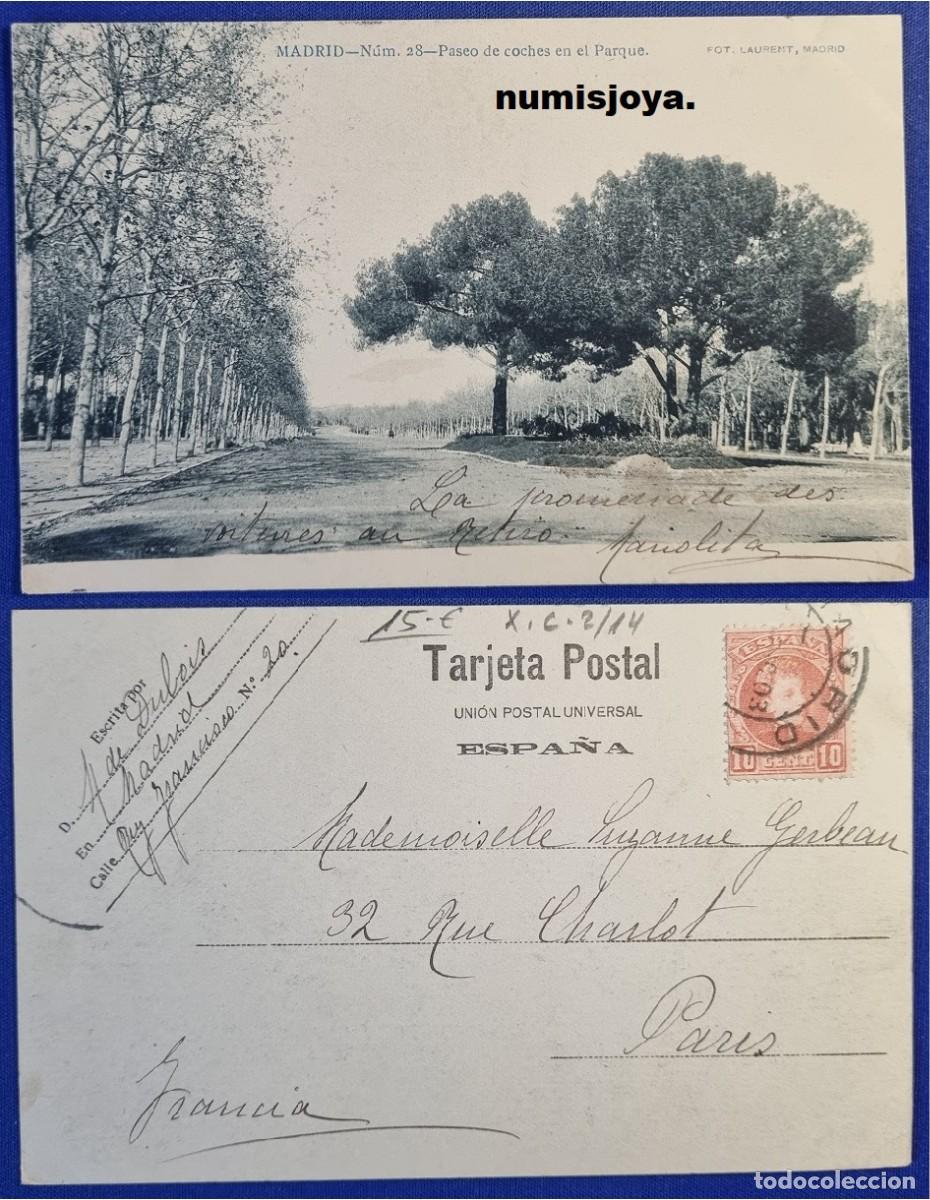 MADRID—Núm. 28—Paseo de coches en el Parque.
FOT. LAURENT, MADRID
numisjoya.
La promenade des
voitures au Retiro. Manolita
15-€ X.C-2/14
Tarjeta Postal
UNIÓN POSTAL UNIVERSAL
ESPAÑA
Escrita por
D. de Dubois
En Madrid
Calle Francisco N.º 20.
ESPAÑA
10 CENT. 10
MADRID
03
Mademoiselle Suzanne Gerbeau
32 Rue Charlot
Paris
Francia
todocoleccion